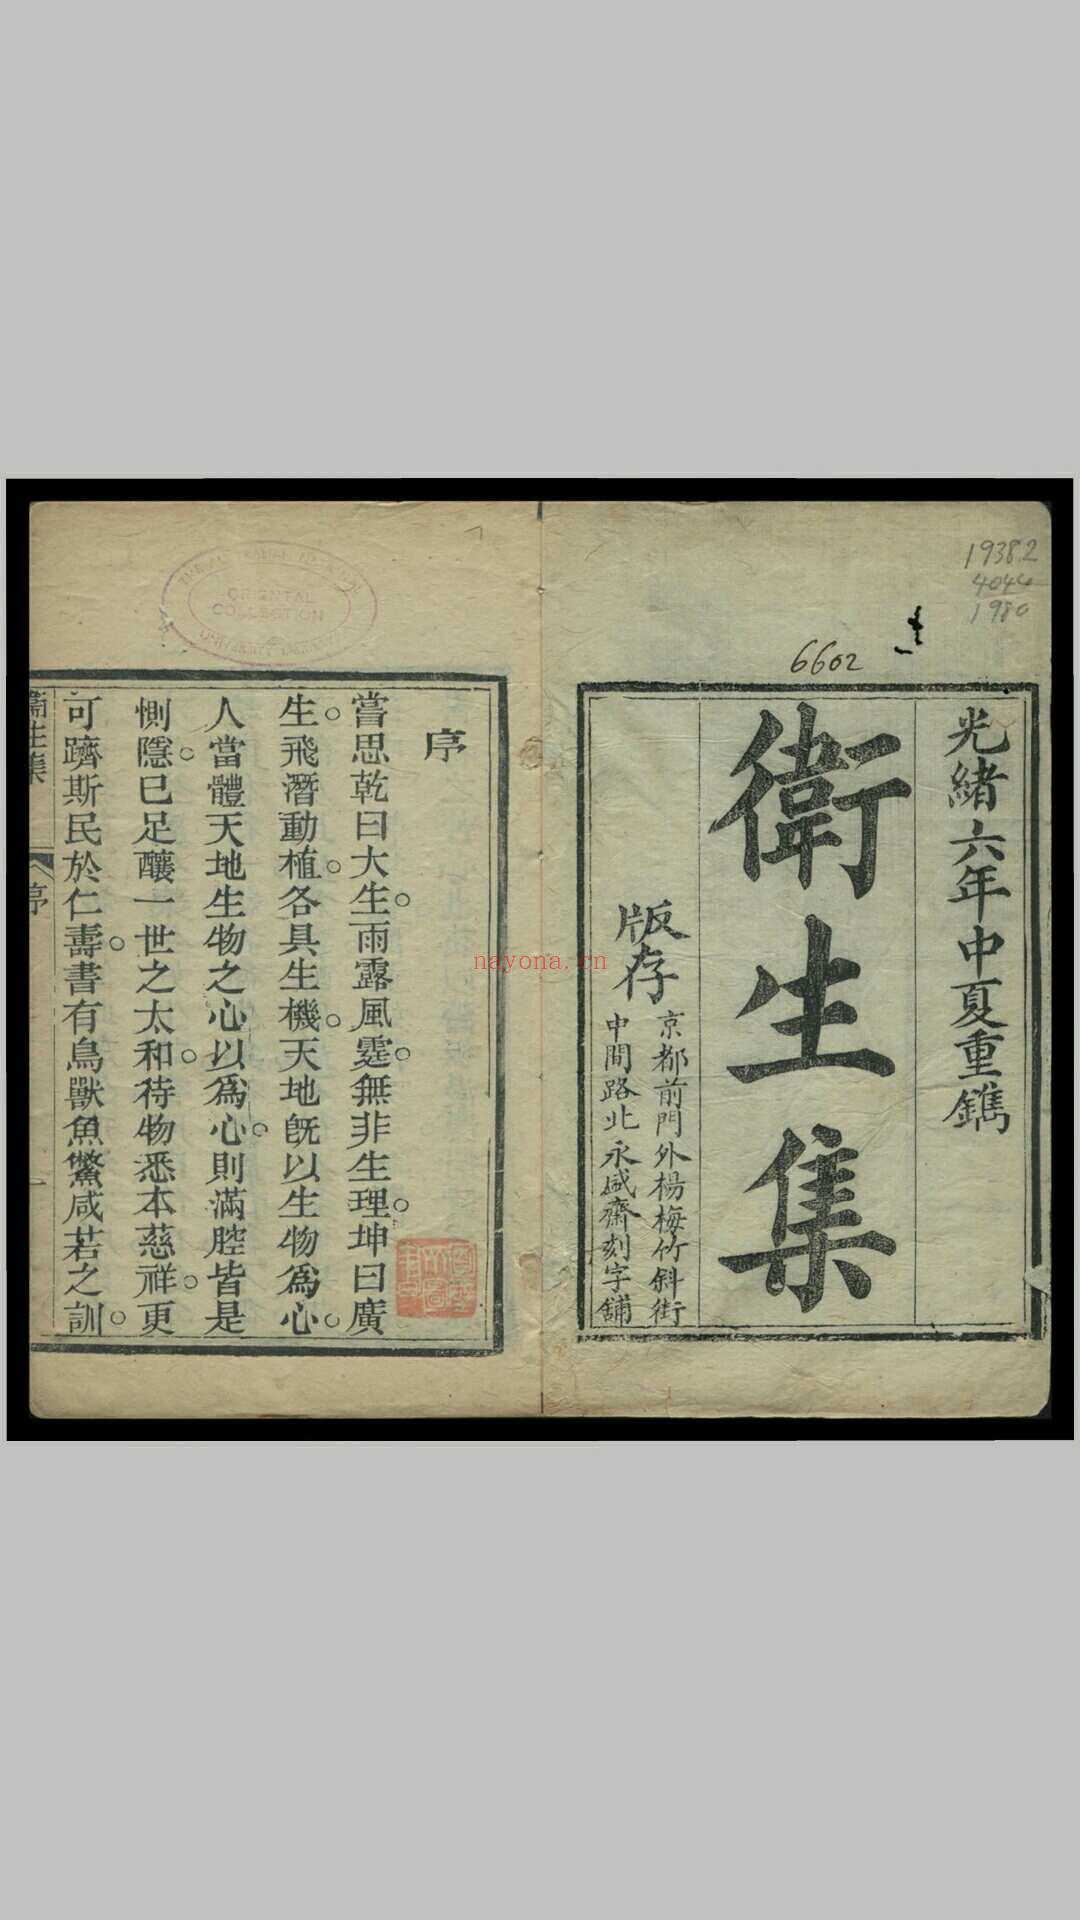 光緒六年中夏重鐫
衛生集
版存
京都前門外楊梅竹斜街
中間路北永盛齋刻字舖
6602
1938.2
4044
1980
序
嘗思乾曰大生。雨露風霆。無非生理。坤曰廣
生。飛潛動植。各具生機。天地旣以生物爲心。
人當體天地生物之心以爲心。則滿腔皆是
惻隱。已足釀一世之太和。待物悉本慈祥。更
可躋斯民於仁壽。書有鳥獸魚鱉咸若之訓。
衛生集
序
一
ORIENTAL
COLLECTION
UNIVERSITY LIBRARY
nayona.cn